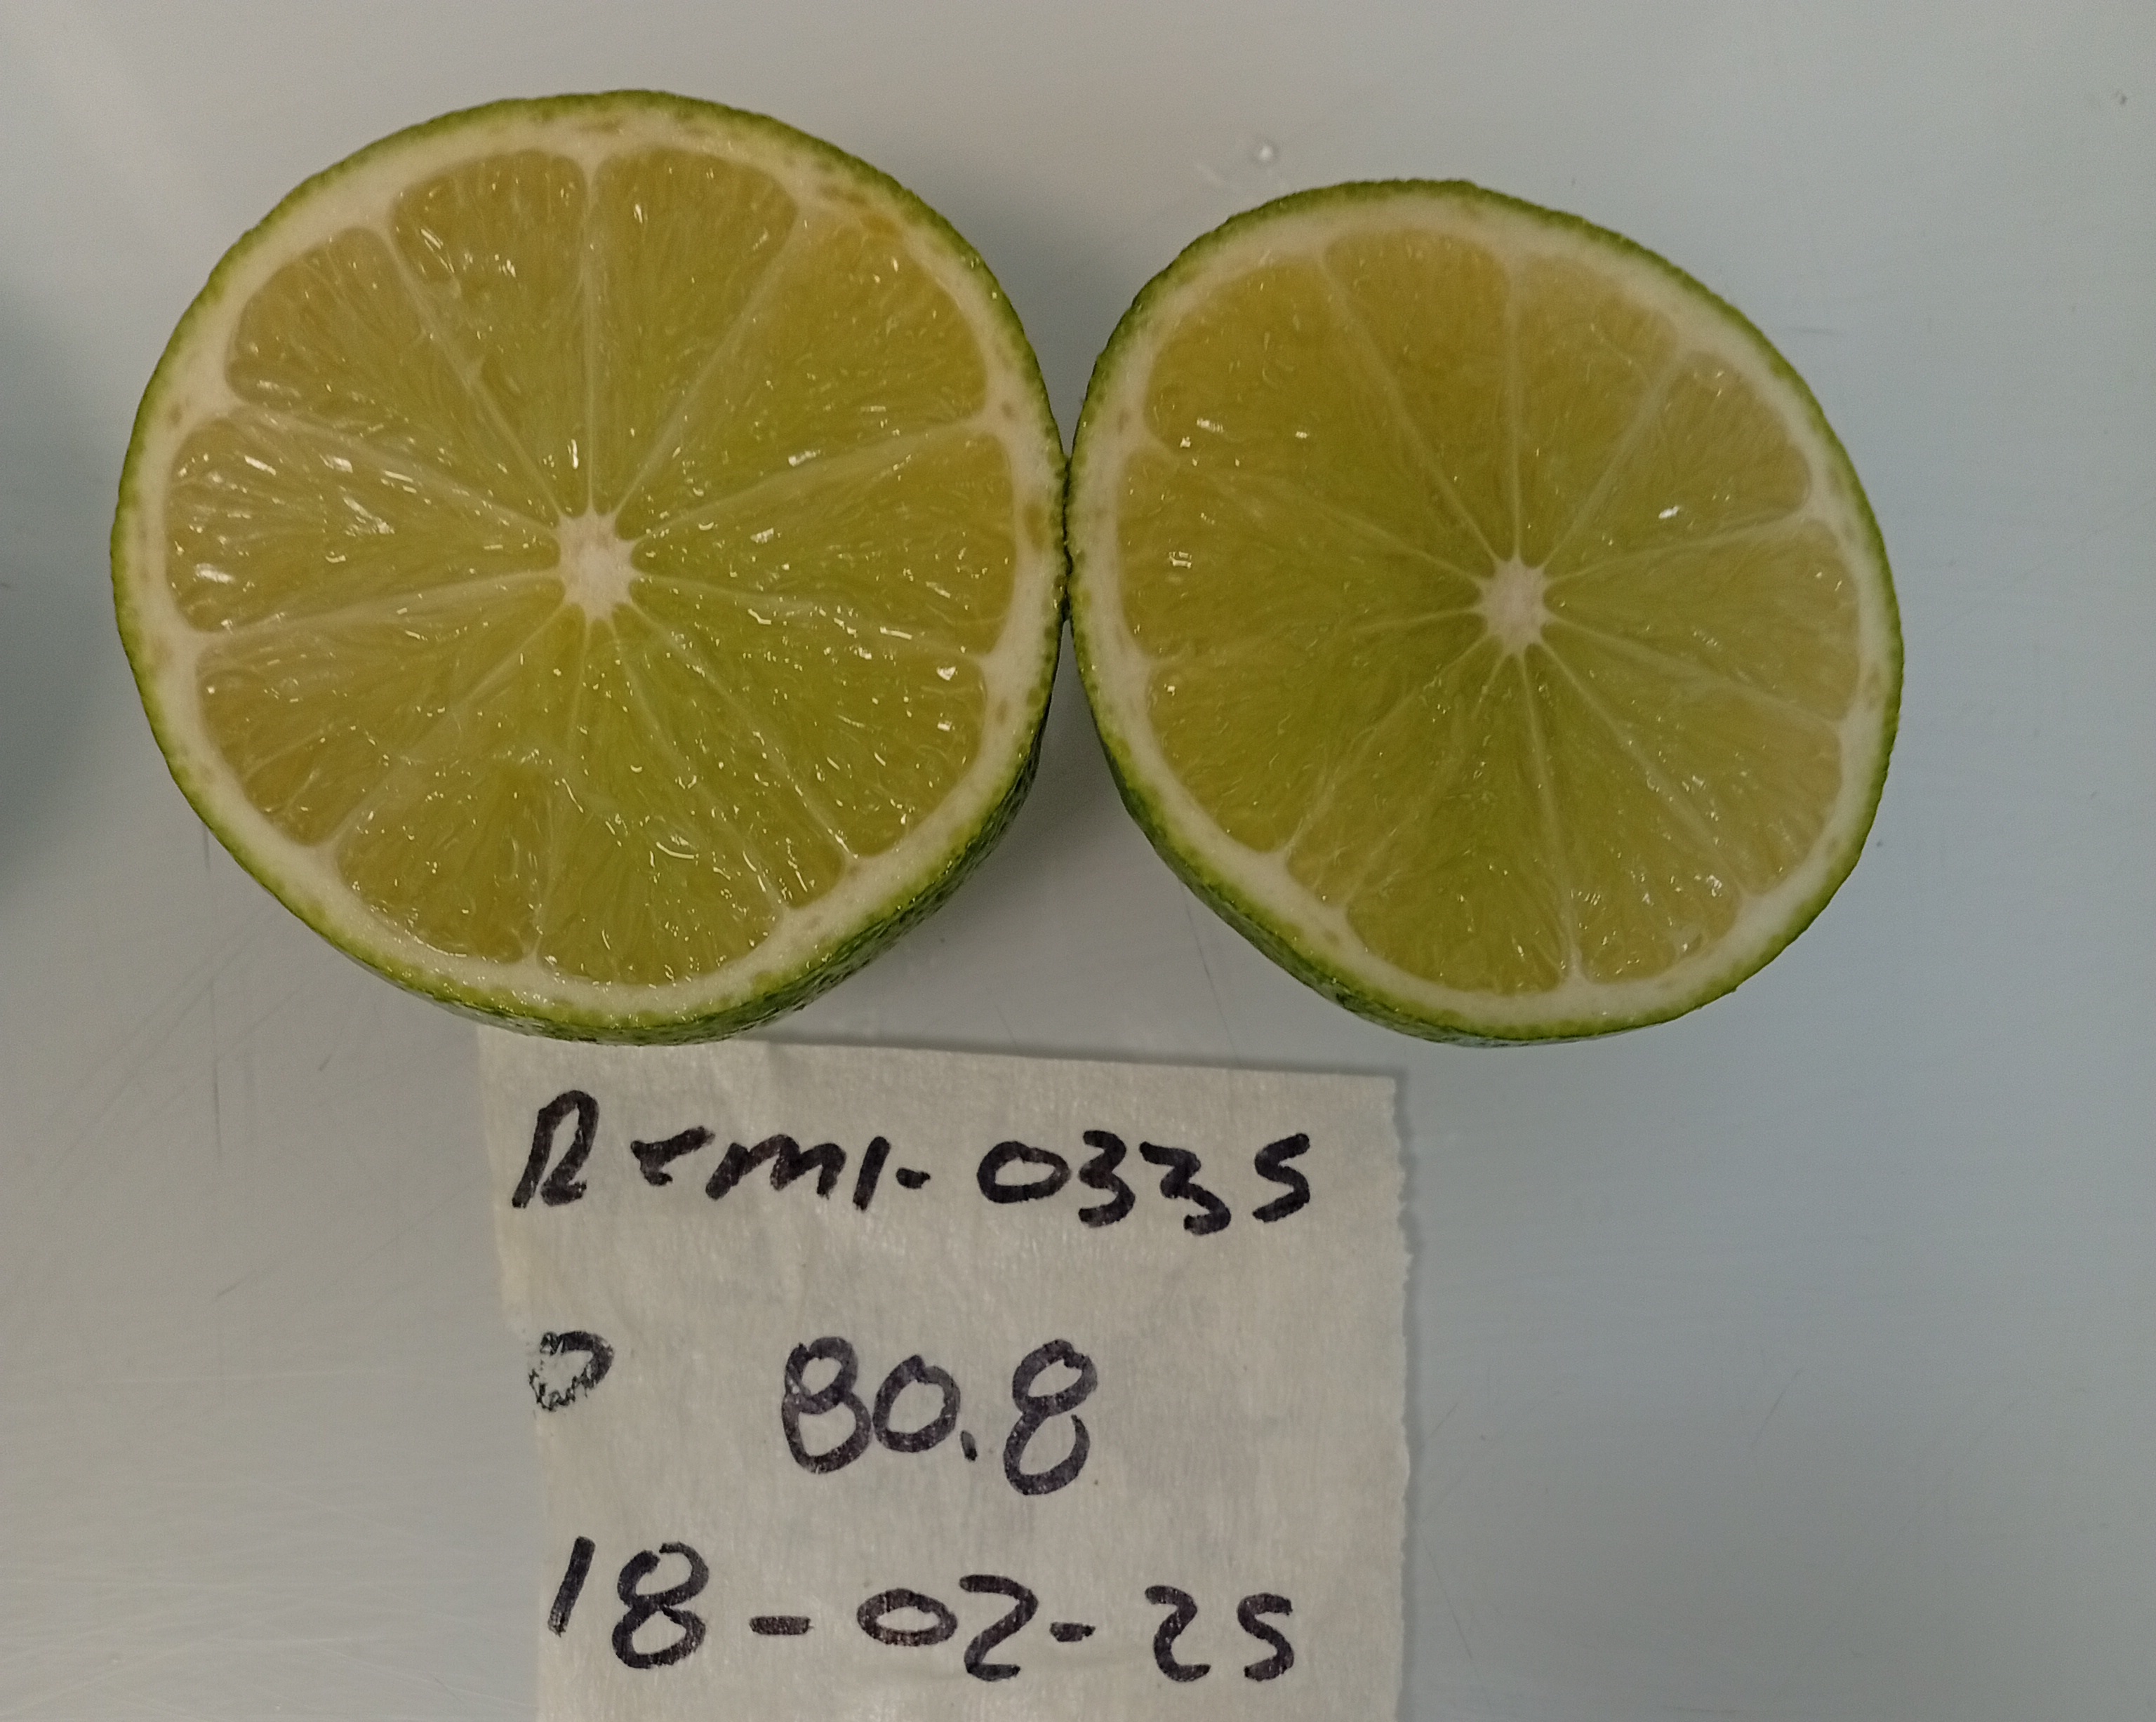 Remi-0335
D 80.8
18-02-25